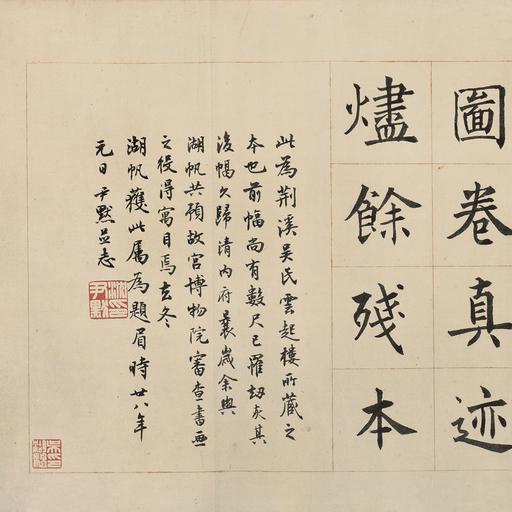 啚卷真迹
燼餘殘本
此為荆溪吴氏雲起樓所藏之
本也前幅尚有數尺已罹劫灰其
後幅久歸清内府曩歲余與
湖帆共預故宫博物院審查書画
之役得寓目焉去冬
湖帆獲此属為題眉時廿八年
元日尹默并志